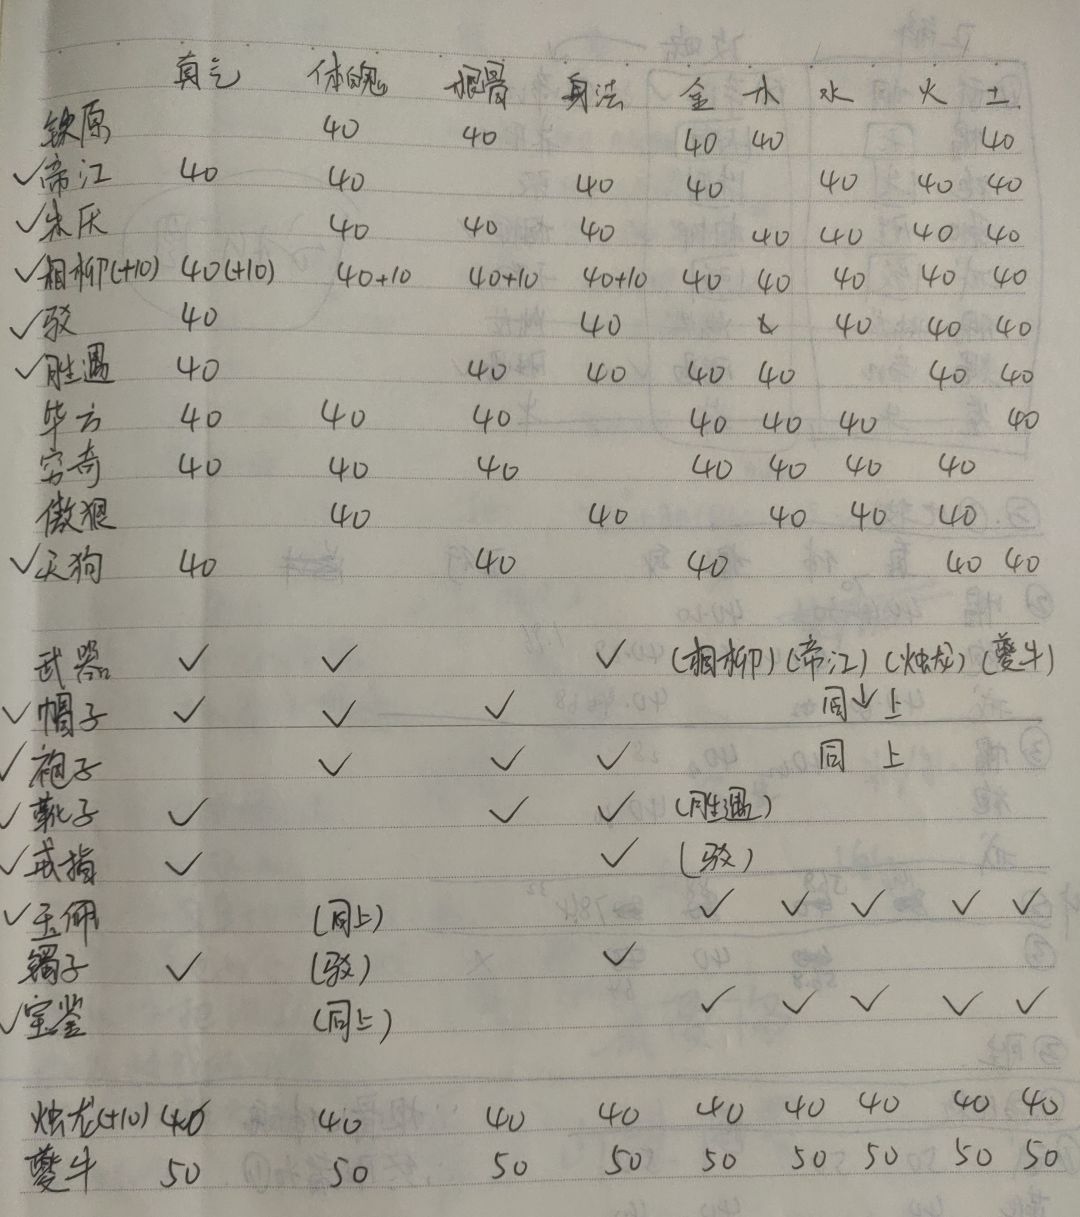 真气 体魄 根骨 身法 金 木 水 火 土
铁原 40 40 40 40 40
✓帝江 40 40 40 40 40 40 40
✓朱厌 40 40 40 40 40 40 40
✓相柳(+10) 40(+10) 40+10 40+10 40+10 40 40 40 40 40
✓驳 40 40 40 40 40
✓胜遇 40 40 40 40 40 40 40
毕方 40 40 40 40 40 40 40
穷奇 40 40 40 40 40 40 40
傲狠 40 40 40 40 40
✓天狗 40 40 40 40 40
武器 ✓ ✓ ✓ (相柳)(帝江)(烛龙)(夔牛)
✓帽子 ✓ ✓ ✓ 同上
✓袍子 ✓ ✓ ✓ 同上
✓靴子 ✓ ✓ ✓ (胜遇)
✓戒指 ✓ ✓ (驳)
✓玉佩 (同上) ✓ ✓ ✓ ✓ ✓
镯子 ✓ (驳) ✓
✓宝鉴 (同上) ✓ ✓ ✓ ✓ ✓
烛龙(+10) 40 40 40 40 40 40 40 40 40
夔牛 50 50 50 50 50 50 50 50 50